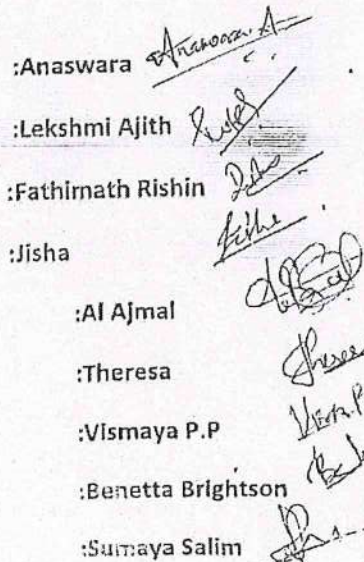 :Anaswara Anaswara A
:Lekshmi Ajith
:Fathimath Rishin
:Jisha Jisha
:Al Ajmal
:Theresa Theresa
:Vismaya P.P
:Benetta Brightson
:Sumaya Salim